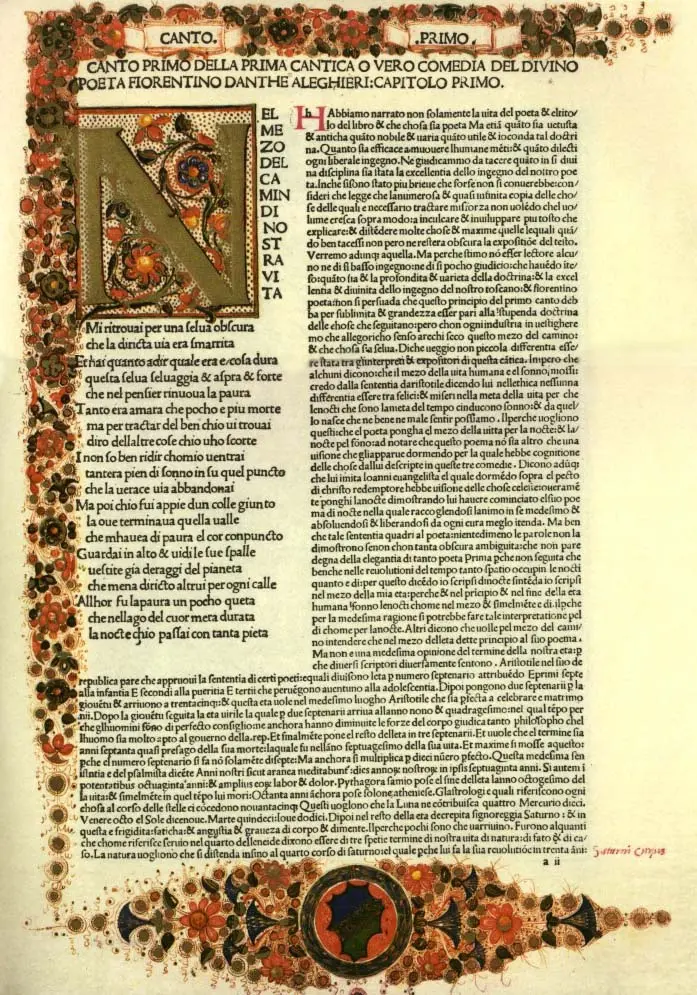 CANTO.
.PRIMO.
CANTO PRIMO DELLA PRIMA CANTICA O VERO COMEDIA DEL DIVINO
POETA FIORENTINO DANTHE ALEGHIERI: CAPITOLO PRIMO.
N
EL
MEZO
DEL
CA
MIN
DI
NO
ST
RA
VI
TA
Mi ritrouai per una selua obscura
che la diricta uia era smarrita
Et hai quanto adir quale era e cosa dura
questa selua seluaggia & aspra & forte
che nel pensier rinuoua la paura
Tanto era amara che pocho e piu morte
ma per tractar del ben chio ui trouai
diro dellaltre cose chio uho scorte
I non so ben ridir chomio uentrai
tantera pien di sonno in su quel puncto
che la uerace uia abbandonai
Ma poi chio fui appie dun colle giunto
la oue terminaua quella ualle
che mhauea di paura el cor conpuncto
Guardai in alto & uidi le sue spalle
uestite gia deraggi del pianeta
che mena diricto altrui per ogni calle
Allhor fu lapaura un pocho queta
che nellago del cuor mera durata
la nocte chio passai con tanta pieta
HAbbiamo narrato non solamente la uita del poeta & eltito/
lo del libro & che chosa sia poeta Ma etiã quãto sia uetusta
& anticha quãto nobile & uaria quãto utile & ioconda tal doctri
na. Quanto sia efficace a muouere lhumane mẽti: & quãto dilecti
ogni liberale ingegno. Ne giudicammo da tacere quãto in si diui
na disciplina sia stata la excellentia dello ingegno del nostro poe
ta. Inche sisono stato piu brieue che forse non si conuerebbe: con/
sideri che legge che lanumerosa & quasi infinita copia delle cho/
se delle quali e necessario tractare misforza non uolẽdo chel uo/
lume cresca sopra modo: a inculcare & inuiluppare piu tosto che
explicare: & distẽdere molte chose & maxime quelle lequali quã/
do ben tacessi non pero ne restera obscura la expositiõe del testo.
Verremo adunqȝ aquella. Ma perche stimo nõ esser lectore alcu/
no ne di si basso ingegno: ne di si pocho giudicio: che hauẽdo ĩte/
so: quãto sia & la profondita & uarieta della doctrina: & la excel
lentia & diuinita dello ingegno del nostro toscano: & fiorentino
poeta: non si persuada che questo principio del primo canto deb
ba per sublimita & grandezza esser pari alla stupenda doctrina
delle chose che seguitano: pero chon ogni industria in uestighere
mo che allegoricho senso arechi seco questo mezo del camino:
& che chosa sia selua. Diche ueggio non piccola differentia esse/
re stata tra glinterpreti & expositori di questa cãtica. Impero che
alchuni dicono: che il mezo della uita humana e el sonno, mossi:
credo dalla sententia daristotile dicendo lui nellethica nessunna
differẽtia essere tra felici: & miseri nella meta della uita per che
lenocti che sono lameta del tempo cinducono sonno: & da quel/
lo nasce che ne bene ne male sentir possiamo. Ilperche uogliono
questi: che el poeta pongha el mezo della uitta per la nocte: & la/
nocte pel sõno: ad notare che questo poema nõ sia altro che una
uisione che gliapparue dormendo per la quale hebbe cognitione
delle chose dallui descripte in queste tre comedie. Dicono adũqȝ
che lui imita Ioanni euangelista el quale dormẽdo sopra el pecto
di christo redemptore hebbe uisione delle chose celeste: oueramẽ
te ponghi lanocte dimostrando lui hauere cominciato elsuo poe
ma di nocte nella quale raccoglendosi lanimo in se medesimo &
absoluendosi & liberando si da ogni cura meglo ĩtenda. Ma ben
che tale sententia quadri al poeta: nientedimeno le parole non la
dimostrono senon chon tanta obscura ambiguita: che non pare
degna della elegantia di tanto poeta Prima pche non seguita che
benche nelle reuolutioni del tempo tanto spatio occupin le nocti
quanto e di: per questo dicẽdo io scripsi dinocte sintẽda io scripsi
nel mezo della mia eta: perche & nel pricipio & nel fine della eta
humana sonno lenocti chome nel mezo & similmẽte e di. ilpche
per la medesima ragione si potrebbe fare tale interpretatione pel
di chome per lanocte. Altri dicono che uolle pel mezo del cami/
no intendere che nel mezo delleta dette principio al suo poema.
Ma non e una medesima opinione del termine della nostra eta: p
che diuersi scriptori diuersamente sentono. Aristotile nel suo de
republica pare che appruoui la sententia di certi poeti: equali diuisono leta p numero septenario attribuẽdo Eprimi septe
alla infantia E secondi alla pueritia E tertii che peruẽgono auentuno alla adolescentia. Dipoi pongono due septenarii p la
giouẽtu & arriuono a trentacinqȝ: & questa eta uole nel medesimo luogho Aristotile che sia pfecta a celebrare e matrimo
nii. Dopo la giouẽtu seguita la eta uirile la quale p due septenarii arriua allanno nono & quadragesimo: nel qual tẽpo per
che glhuomini sono di perfecto consiglio ne anchora hanno diminuite le forze del corpo giudica tanto philosopho chel
lhuomo sia molto apto al gouerno della. rep. Et finalmẽte pone el resto delleta in tre septenarii. Et uuole che el termine sia
anni septanta quasi presago della sua morte: laquale fu nellãno septuagesimo della sua uita. Et maxime si mosse aquesto:
pche el numero septenario si fa nõ solamẽte disepte: Ma anchora si multiplica p dieci nũero pfecto. Questa medesima sen
tentia e del psalmista dicẽte Anni nostri sicut aranea meditabunt: dies annoȝ nostroȝ in ipsis septuaginta anni. Si autem ĩ
potentatibus octuaginta anni: & amplius eoȝ labor & dolor. Pythagora samio pose el fine delleta lanno octogesimo del
la uita: & similmẽte in quel tẽpo lui mori: Octanta anni ãchora pose solone atheniese. Glastrologi e quali riferiscono ogni
chosa al corso delle stelle ci cõcedono nouantacinqȝ Questi uogliono che la Luna ne cõtribuisca quattro Mercurio dieci.
Venere octo el Sole dicenoue. Marte quindeci: Ioue dodici. Dipoi nel resto della eta decrepita signoreggia Saturno: & in
questa e frigidita: faticha: & angustia & graueza di corpo & dimente. Ilperche pochi sono che uarriuino. Furono alquanti
che chome riferisce seruio nel quarto delleneide dixono essere di tre spetie termine di nostra uita di natura: di fato & di ca/
so. La natura uogliono che si distenda insino al quarto corso di saturno: el quale pche lui fa la sua reuolutiõe in trenta ãni:
Saturni Corpus
a ii